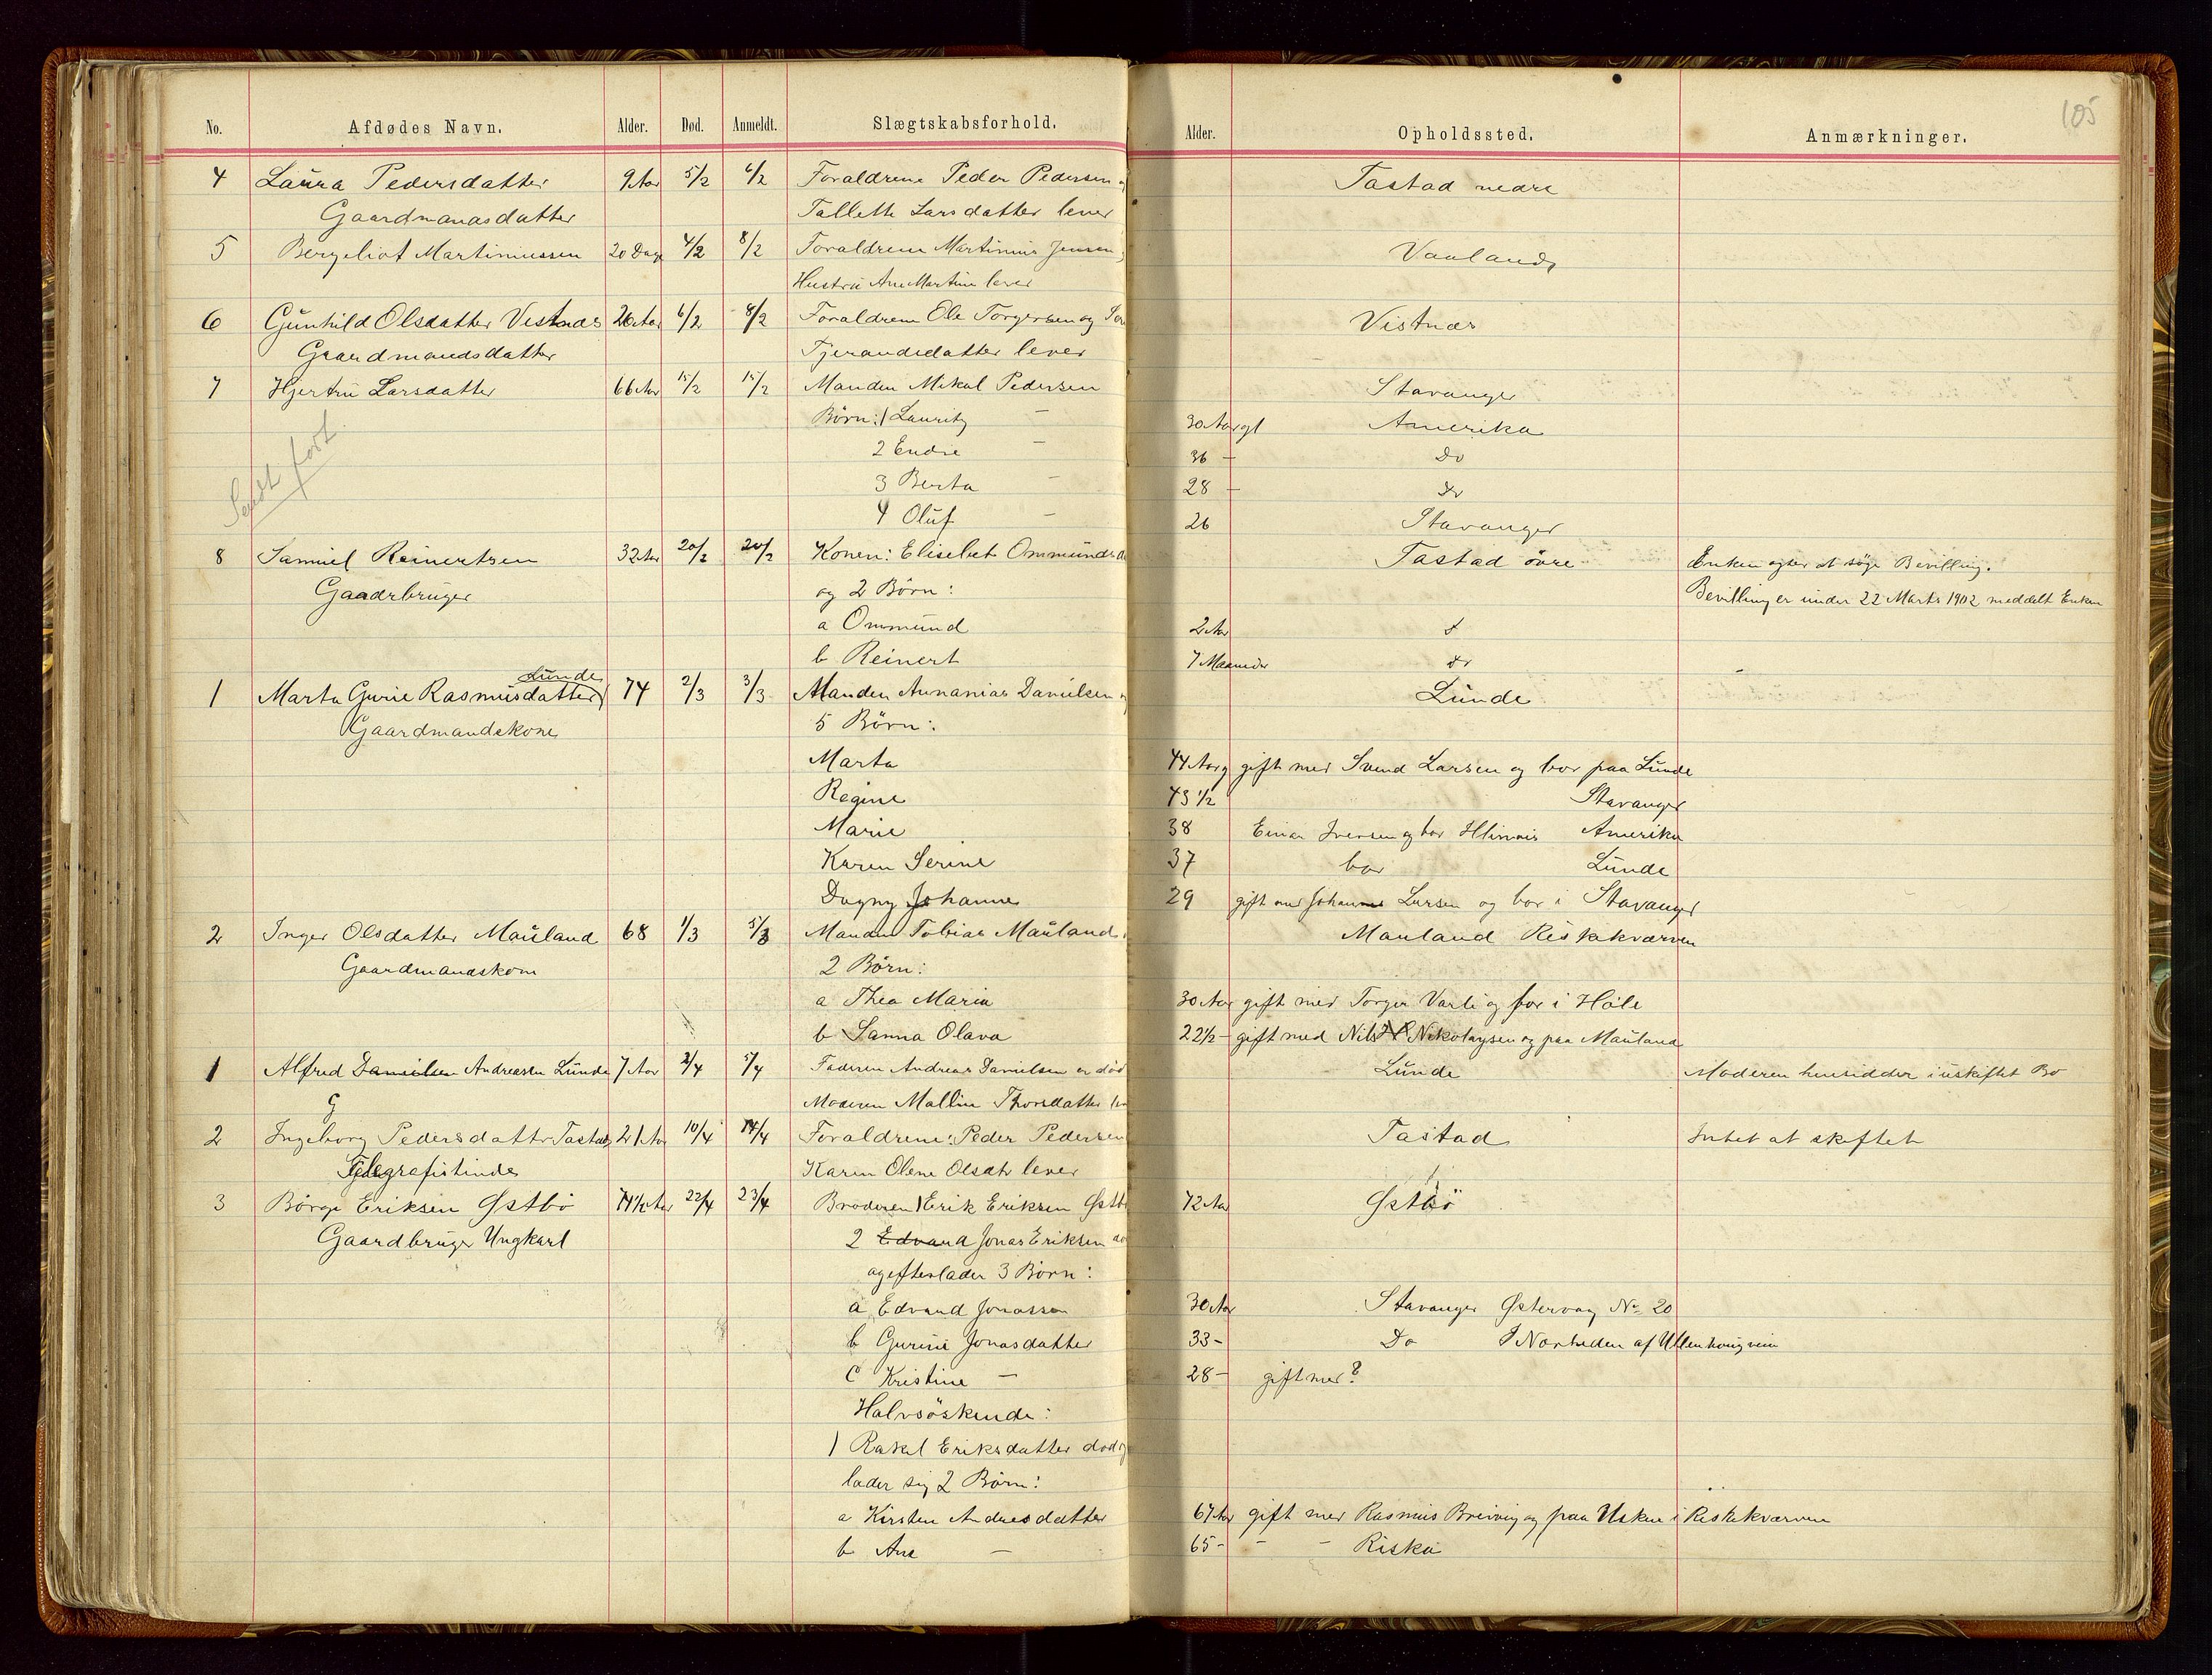 105
No. Afdødes Navn. Alder. Død. Anmeldt. Slægtskabsforhold. Alder. Opholdssted. Anmærkninger.
4 Laura Pedersdatter 9 Aar 5/2 6/2 Foraldrene Peder Pedersen og Tastad nedre
Gaardmandsdatter Tallette Larsdatter lever
5 Bergeliot Martiniussen 20 Dage 4/2 8/2 Foraldrene Martinius Jensen Vaaland
Hustru Ane Martine lever
6 Gunhild Olsdatter Vestnæs 26 Aar 6/2 8/2 Foraldrene Ole Torgersen og Vistnæs
Gaardmandsdatter Tjerandsdatter lever
7 Hjertrü Larsdatter 66 Aar 15/2 15/2 Manden Mikal Pedersen Stavanger
Børn: 1 Lauritz — 30 Aar gl Amerika
2 Endre — 36 — Do
Sendt fort 3 Berta — 28 — Do
4 Oluf — 26 Stavanger
8 Samuel Reinertsen 32 Aar 20/2 20/2 Konen: Elisebet Ommunds Tastad övre Enken agter at söge Bevilling.
Gaardbruger og 2 Børn: Bevilling er under 22 Marts 1902 meddelt Enken
a Ommund 2 Aar
b Reinert 7 Maaneder Do
Lunde
1 Marta Gurie Rasmusdatter 74 2/3 3/3 Manden Annanias Danielsen Lunde
Gaardmandskone 5 Børn:
Marta 44 Aar g gift med Svend Larsen og bor paa Lunde
Regine 43 1/2 Stavanger
Marie 38 Einar Iversen og bor Illinois Amerika
Karen Serine 37 bor Lunde
Dagny Johanne 29 gift med Johannes Larsen og bor i Stavanger
2 Inger Olsdatter Mauland 68 1/3 5/3 Manden Tobias Mauland Mauland Riskekværven
Gaardmandskone 2 Børn:
a Thea Maria 30 Aar gift med Torger Varli og bor i Höle
b Sanna Olava 22 1/2 — gift med Nils Nikolaysen og paa Mauland
1 Alfred Danielsen Andreassen Lunde 7 Aar 2/4 5/4 Faderen Andreas Danielsen er död Lunde Moderen hensidder i uskiftet Bo
G Moderen Malline Thorsdatter
2 Ingeborg Pedersdatter Tastad 21 Aar 10/4 14/4 Foraldrene: Peder Pedersen Tastad Intet at skiftet
Telegrafistinde Karen Olene Olsdtr lever
3 Börge Eriksen Østbö 74 1/2 Aar 22/4 23/4 Broderen 1 Erik Eriksen Østb 72 Aar Østbö
Gaardbruger Ungkarl 2 Edvard Jonas Eriksen
og efterlader 3 Børn:
a Edvard Jonassen 30 Aar Stavanger Østervag No 20
b Gurine Jonasdatter 33 - Do I Nærheden af Ullenhaugveien
c Kristine — 28 - gift med ?
Halvsöskende:
1 Rakel Eriksdatter död
lader sig 2 Børn:
a Kirsten Andresdatter 67 Aar gift med Rasmus Breivig og paa Usken i Riskekværven
b Ane — 65 - — — Riska